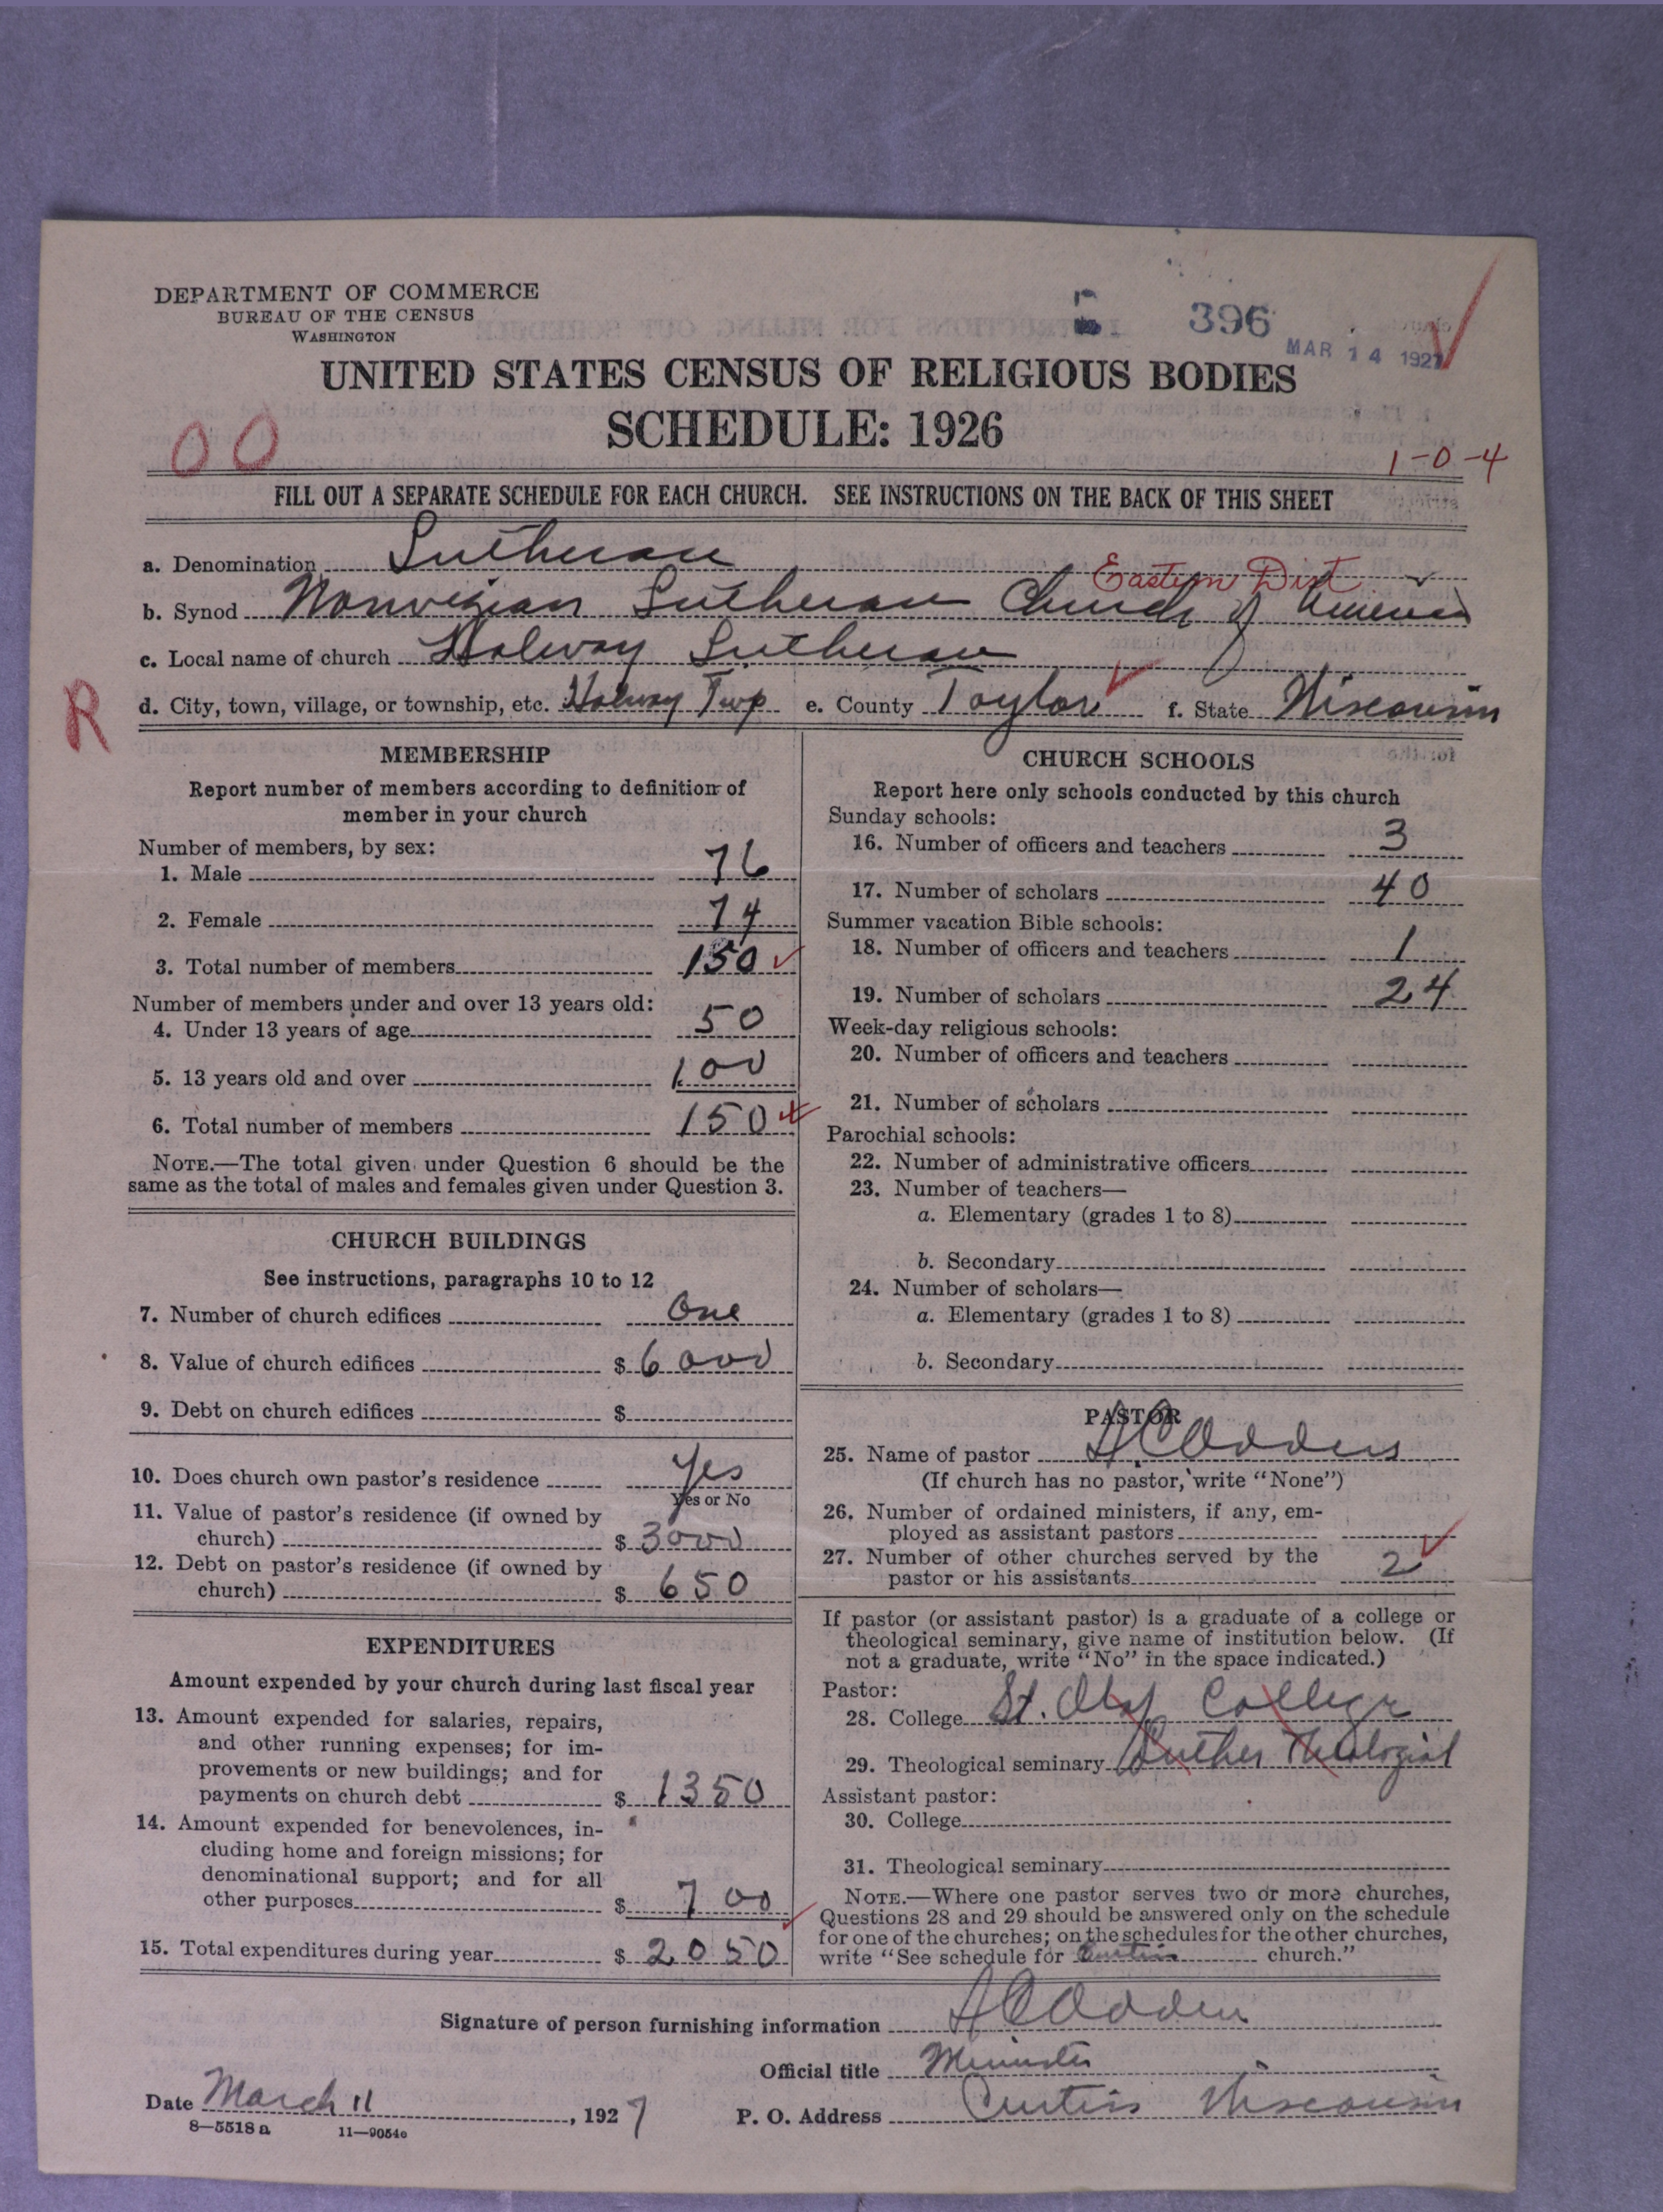 DEPARTMENT OF COMMERCE
BUREAU OF THE CENSUS
WASHINGTON
396
MAR 14 1927
UNITED STATES CENSUS OF RELIGIOUS BODIES
SCHEDULE: 1926
00
1-0-4
FILL OUT A SEPARATE SCHEDULE FOR EACH CHURCH. SEE INSTRUCTIONS ON THE BACK OF THIS SHEET
a. Denomination Lutheran
Eastern Dist
b. Synod Norwegian Lutheran Church of America
c. Local name of church Holway Lutheran
R
d. City, town, village, or township, etc. Holway Twp e. County Taylor f. State Wisconsin
MEMBERSHIP
Report number of members according to definition of
member in your church
Number of members, by sex:
1. Male 76
2. Female 74
3. Total number of members 150
Number of members under and over 13 years old:
4. Under 13 years of age 50
5. 13 years old and over 100
6. Total number of members 150
NOTE.—The total given under Question 6 should be the
same as the total of males and females given under Question 3.
CHURCH BUILDINGS
See instructions, paragraphs 10 to 12
7. Number of church edifices One
8. Value of church edifices $ 6000
9. Debt on church edifices $
10. Does church own pastor's residence Yes
Yes or No
11. Value of pastor's residence (if owned by
church) $ 3000
12. Debt on pastor's residence (if owned by
church) $ 650
EXPENDITURES
Amount expended by your church during last fiscal year
13. Amount expended for salaries, repairs,
and other running expenses; for im-
provements or new buildings; and for
payments on church debt $ 1350
14. Amount expended for benevolences, in-
cluding home and foreign missions; for
denominational support; and for all
other purposes $ 700
15. Total expenditures during year $ 2050
CHURCH SCHOOLS
Report here only schools conducted by this church
Sunday schools:
16. Number of officers and teachers 3
17. Number of scholars 40
Summer vacation Bible schools:
18. Number of officers and teachers 1
19. Number of scholars 24
Week-day religious schools:
20. Number of officers and teachers
21. Number of scholars
Parochial schools:
22. Number of administrative officers
23. Number of teachers—
a. Elementary (grades 1 to 8)
b. Secondary
24. Number of scholars—
a. Elementary (grades 1 to 8)
b. Secondary
PASTOR
25. Name of pastor
(If church has no pastor, write "None")
26. Number of ordained ministers, if any, em-
ployed as assistant pastors
27. Number of other churches served by the
pastor or his assistants 2
If pastor (or assistant pastor) is a graduate of a college or
theological seminary, give name of institution below. (If
not a graduate, write "No" in the space indicated.)
Pastor:
28. College St. Olaf College
29. Theological seminary Luther Theological
Assistant pastor:
30. College
31. Theological seminary
NOTE.—Where one pastor serves two or more churches,
Questions 28 and 29 should be answered only on the schedule
for one of the churches; on the schedules for the other churches,
write "See schedule for Curtiss church."
Signature of person furnishing information
Official title Minister
Date March 11, 1927 P. O. Address Curtiss Wisconsin
8—5518 a 11—9054c